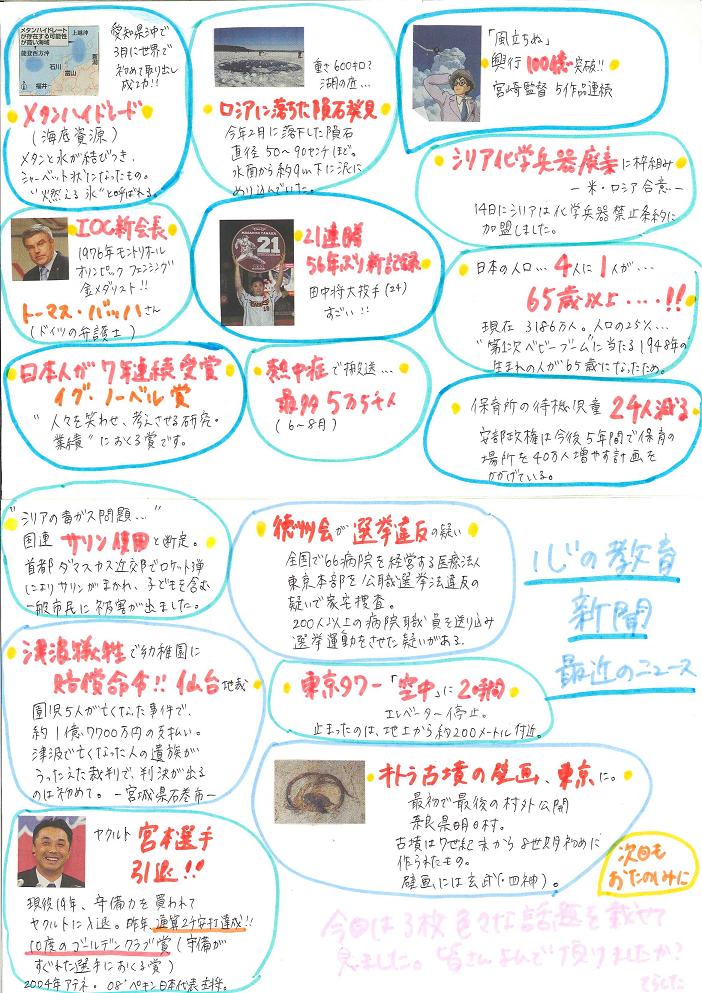 メタンハイドレートが
存在する可能性が
高い海域
上越沖
能登西方沖
石川
富山
福井
愛知県沖で
3月に世界で
初めて取り出し
成功!!
メタンハイドレード
(海底資源)
メタンと水が結びつき、
シャーベット状になったもの。
"燃える氷"と呼ばれる。
重さ600キロ?
湖の底…
ロシアに落ちた隕石発見
今年2月に落下した隕石
直径50〜90センチほど。
水面から約9m下に泥に
めり込んでいた。
「風立ちぬ」
興行100億突破!!
宮崎監督 5作品連続
シリア化学兵器廃棄に枠組み
ー米・ロシア合意ー
14日にシリアは化学兵器禁止条約に
加盟しました。
IOC新会長
1976年モントリオール
オリンピックフェンシング
金メダリスト!!
トーマス・バッハさん
(ドイツの弁護士)
21
21連勝
56年ぶり新記録
田中将大投手(24)
すごい!!
日本の人口… 4人に1人が…
65歳以上・・・・!!
現在 3186万人。人口の25%…
"第1次ベビーブーム"に当たる1948年の
生まれの人が65歳になったため。
日本人が7年連続受賞
イグ・ノーベル賞
"人々を笑わせ、考えさせる研究・
業績"におくる賞です。
熱中症で搬送…
最多 5万5千人
(6〜8月)
保育所の待機児童 24人減る
安部政権は今後5年間で保育の
場所を40万人増やす計画を
かかげている。
"シリアの毒ガス問題…"
国連 サリン使用と断定。
首都ダマスカス近交部でロケット弾
によりサリンがまかれ、子どもを含む
一般市民に被害が出ました。
徳州会が選挙違反の疑い
全国で66病院を経営する医療法人
東京本部を公職選挙法違反の
疑いで家宅捜査。
200人以上の病院職員を送り込み
選挙運動をさせた疑いがある。
いじの教育
新聞
最近のニュース
津波犠牲で幼稚園に
賠償命令!! 仙台地裁
園児5人が亡くなった事件で、
約1億7700万円の支払い。
津波で亡くなった人の遺族が
うったえた裁判で、判決が出る
のは初めて。ー宮城県石巻市ー
東京タワー「空中」に2時間
エレベーター停止。
止まったのは、地上から約200メートル付近。
キトラ古墳の壁画、東京に。
最初で最後の村外公開
奈良県明日村。
古墳は7世紀末から8世紀初めに
作られたもの。
壁画には玄武(四神)。
ヤクルト 宮本選手
引退!!
現役19年、守備力を買われて
ヤクルトに入退。昨年、通算2千安打達成!!
10度のゴールデングラブ賞(守備が
すぐれた選手におくる賞)
2004年アテネ・08'ペキン日本代表主将。
次回も
おたのしみに
今回は3枚色々な話題を載せて
見ました。皆さんよんで頂けましたか?
てらした